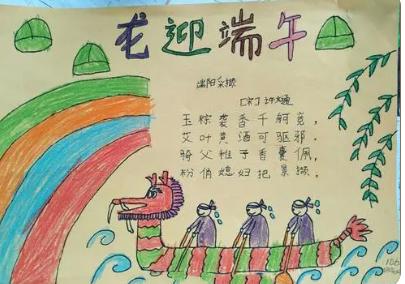 龙迎端午
端阳采撷
玉粽袭香千舸竞，
艾叶黄酒可驱邪。
骑父稚子香囊佩，
粉俏媳妇把景撷。